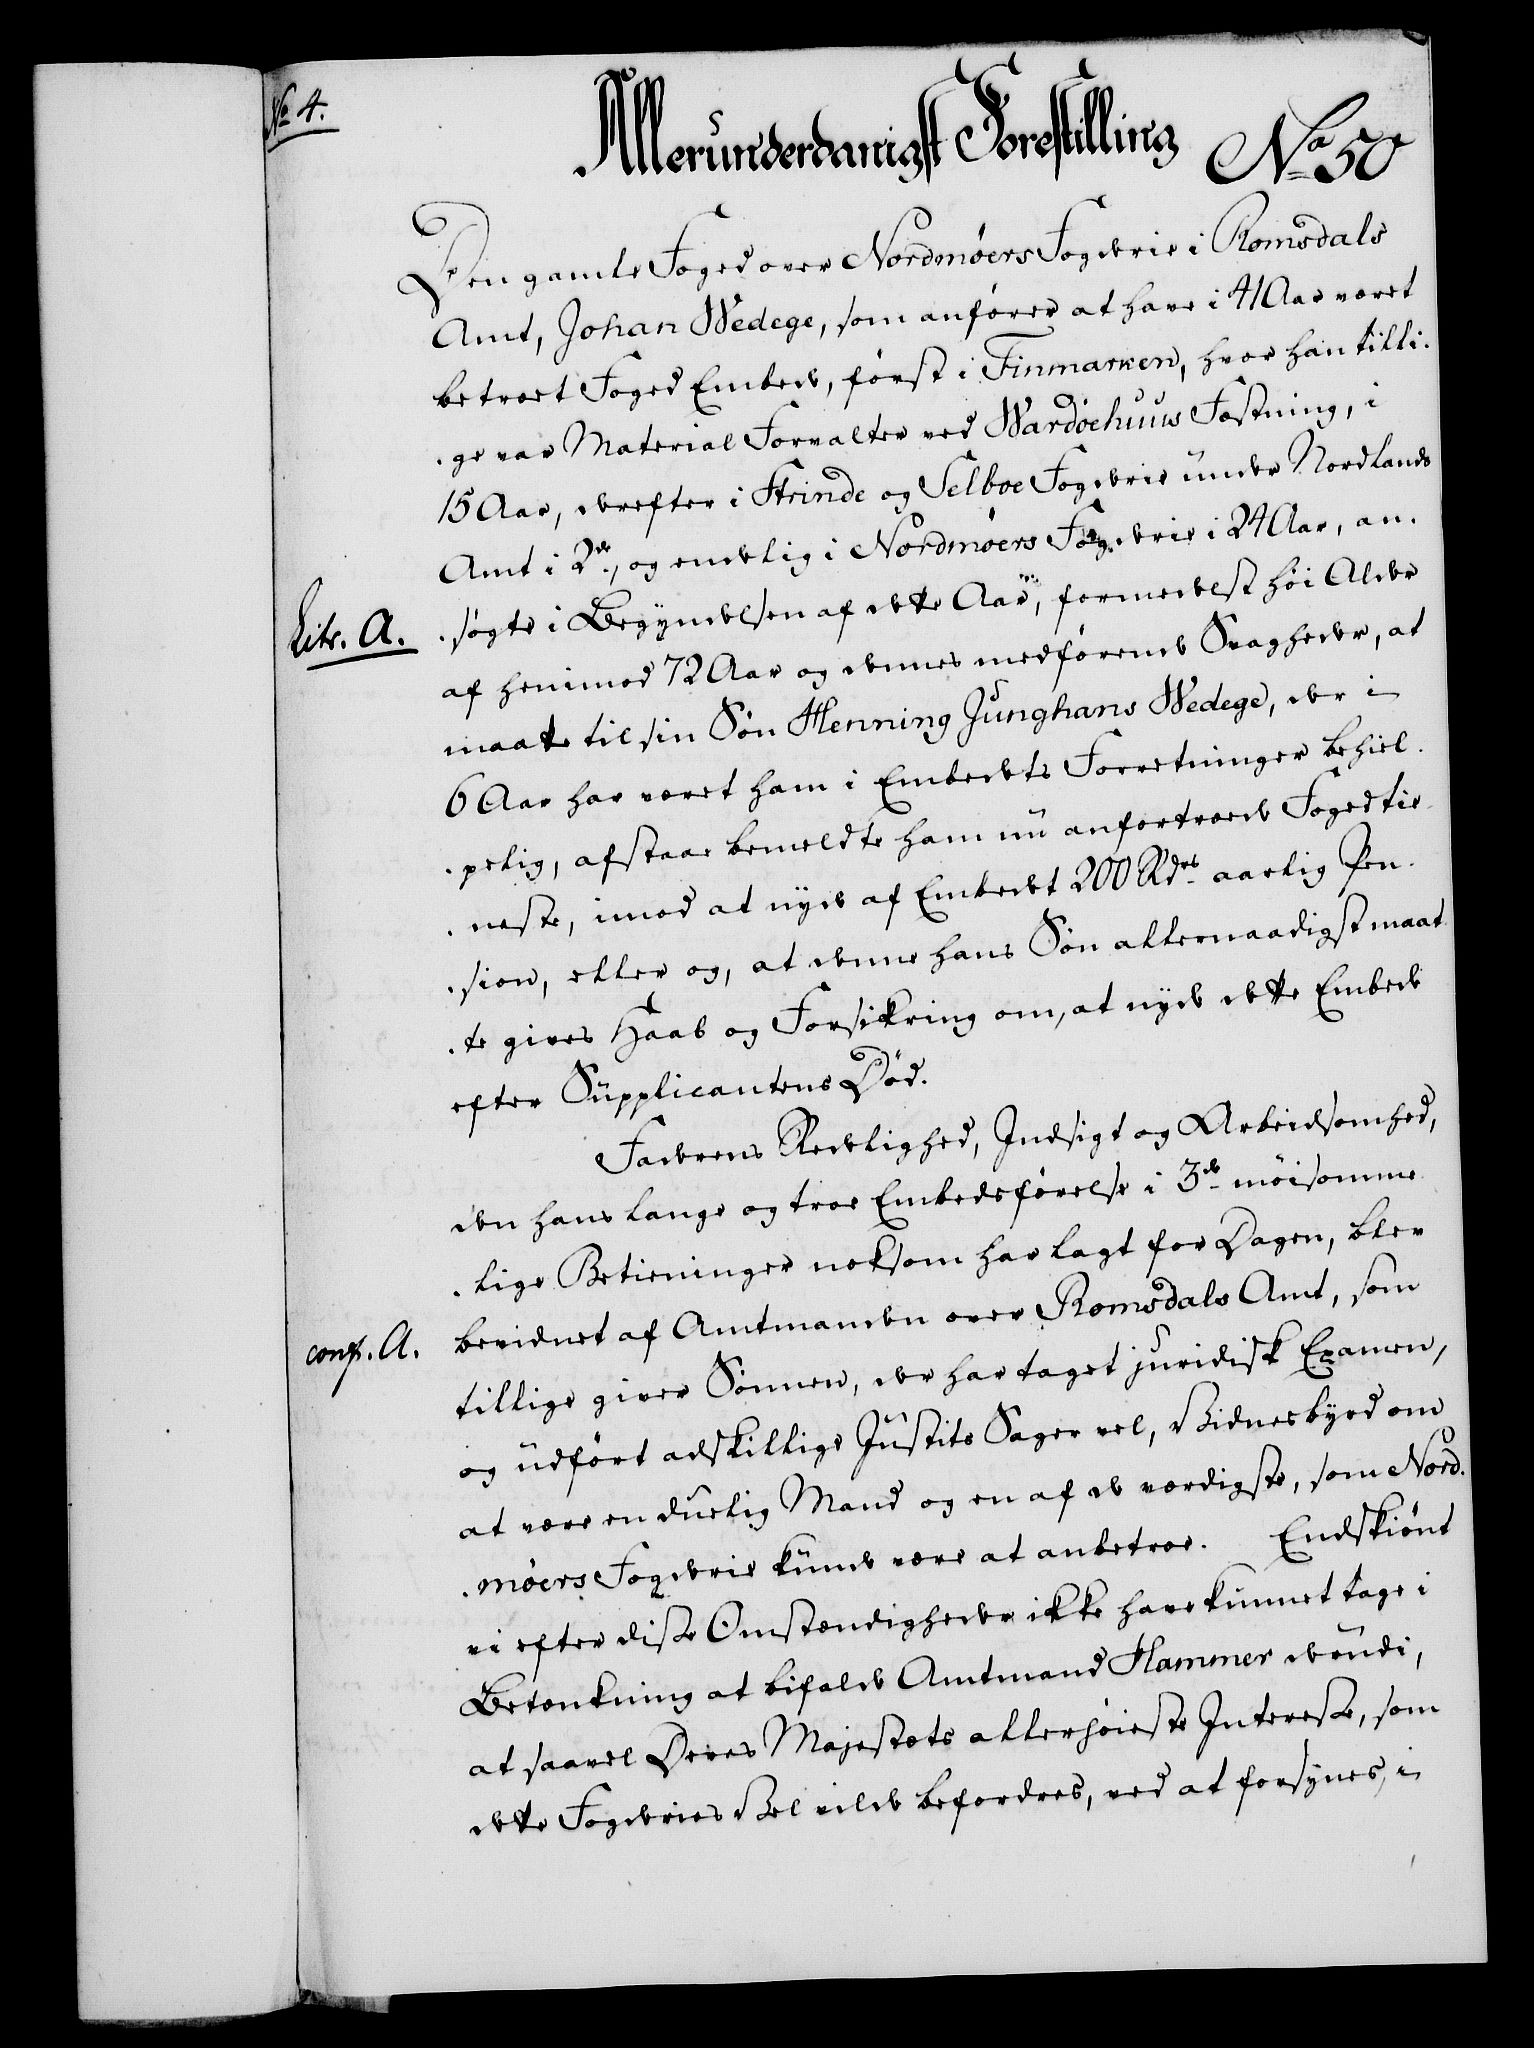 No 4.
Allerunderdanigst Forestilling No 50
Den gamle Foged over Nordmøers Fogderie i Romsdals
Amt, Johan Wedege, som anfører at have i 41 Aar været
betroet Foged Embede, først i Finmarken, hvor han tilli-
-ge var Material Forvalter ved Wardøehuus Fæstning, i
15 Aar, derefter i Strinde og Selboe Fogderie under Nordlands
Amt i 2de, og endelig i Nordmøers Fogderie i 24 Aar, an-
Litr. A. -søgte i Begyndelsen af dette Aar, formedelst høi Alder
af henimod 72 Aar og dennes medførende Svagheder, at
maatte til sin Søn Henning Junghans Wedege, der i
6 Aar har været ham i Embedets Forretninger behiel-
-pelig, afstaae bemeldte ham nu anfortroede Fogedtie-
-neste, imod at nyde af Embedet 200 Rdr aarlig Pen-
-sion, eller og, at denne hans Søn allernaadigst maat-
-te gives Haab og Forsikring om, at nyde dette Embede
efter Supplicantens Død.
Faderens Redelighed, Indsigt og Arbeidsomhed,
den hans lange og troe Embedsførelse i 3de møisomme-
-lige Betieninger noksom har lagt for Dagen, blev
conf. A. bevidnet af Amtmanden over Romsdals Amt, som
tillige giver Sønnen, der har taget juridisk Examen,
og udført adskillige Justits Sager vel, Vidnesbyrd om
at være en duelig Mand og en af de værdigste, som Nord-
-møers Fogderie kunde være at anbetroe. Endskiønt
vi efter disse Omstændigheder ikke have kunnet tage i
Betænkning at bifalde Amtmand Hammer deri,
at saavel Deres Majestæts allerhøieste Interesse, som
dette Fogderies Vel vilde befordres, ved at forsynes, i